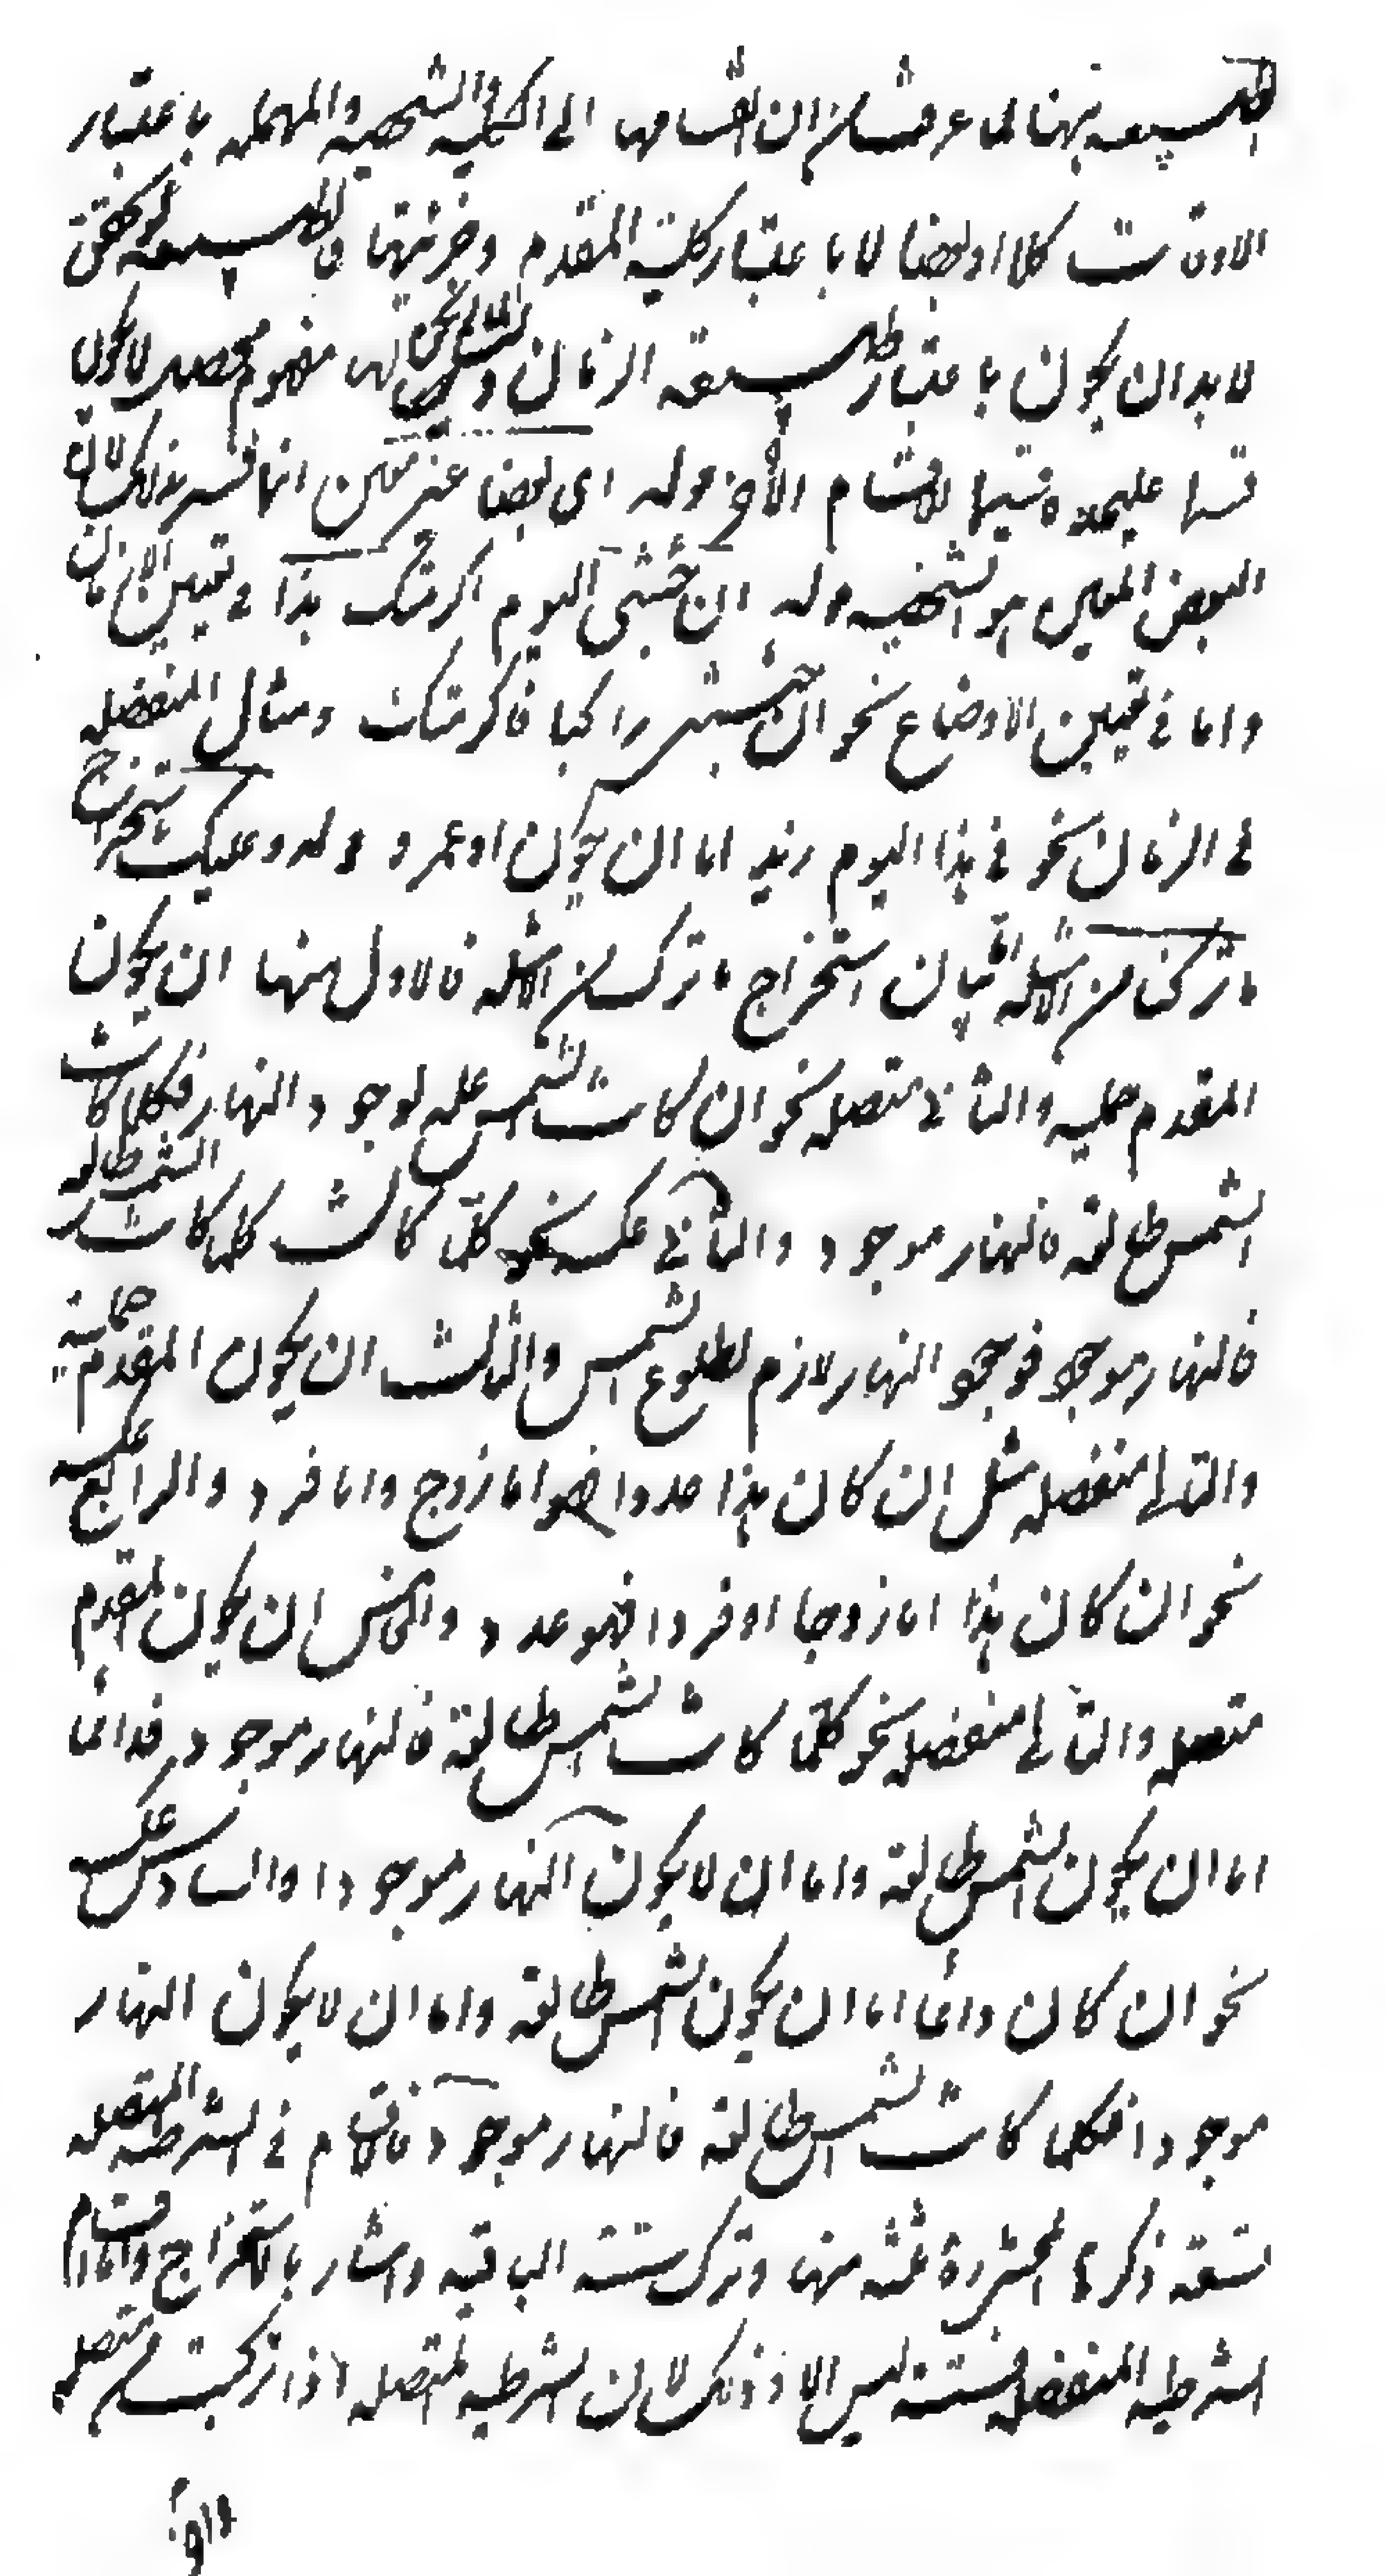 الطبيعه ههنا لما عرفت من ان انقسامها الى الكليه والشخصيه والمهمله باعتبار
الاوقات كلا او بعضا لا باعتبار كلية المقدم وجزئيتها فالطبيعه لو تحقق
لا بد ان يكون باعتبار طبيعة الزمان و لها مفهوم محصل لا يكون
قسما عليحدة قسيما للاقسام الأخر قوله اى بعضا غير معين انما فسر بذلك لان
البعض المعين هو الشخصيه قوله ان جئتنى اليوم اكرمتك هذا فى تعيين الازمان
واما فى تعيين الاوضاع نحو ان جئتنى راكبا فاكرمتك ومثال المنفصله
فى الزمان نحو فى هذا اليوم زيد اما ان يكون او عمرو قوله وعليك باستخراج
ما تركنا من الامثله بيان استخراج ما ترك من الامثله فالاول منها ان يكون
المقدم حمليه والثانى متصله نحو ان كانت الشمس عله لوجود النهار فكلما كانت
الشمس طالعة فالنهار موجود والثانى عكسه نحو كلما كانت كلما كانت الشمس طالعه
فالنهار موجود فوجود النهار لازم لطلوع الشمس والثالث ان يكون المقدم حملية
والتالى منفصله مثل ان كان هذا عددا فهو اما زوج واما فرد والرابع عكسه
نحو ان كان هذا اما زوجا او فردا فهو عدد والخامس ان يكون المقدم
متصله والتالى منفصله نحو كلما كانت الشمس طالعة فالنهار موجود فدائما
اما ان يكون الشمس طالعة واما ان لا يكون النهار موجودا والسادس عكسه
نحو ان كان دائما اما ان يكون الشمس طالعة واما ان لا يكون النهار
موجودا فكلما كانت الشمس طالعة فالنهار موجود فالاقسام فى الشرطيه المتصله
تسعة ذكر ثلثه منها وترك ستة الباقيه واشار بالاستخراج واما اقسام
الشرطيه المنفصله فستة ليس الا وذلك لان الشرطيه المتصله اذا تركبت من متصله